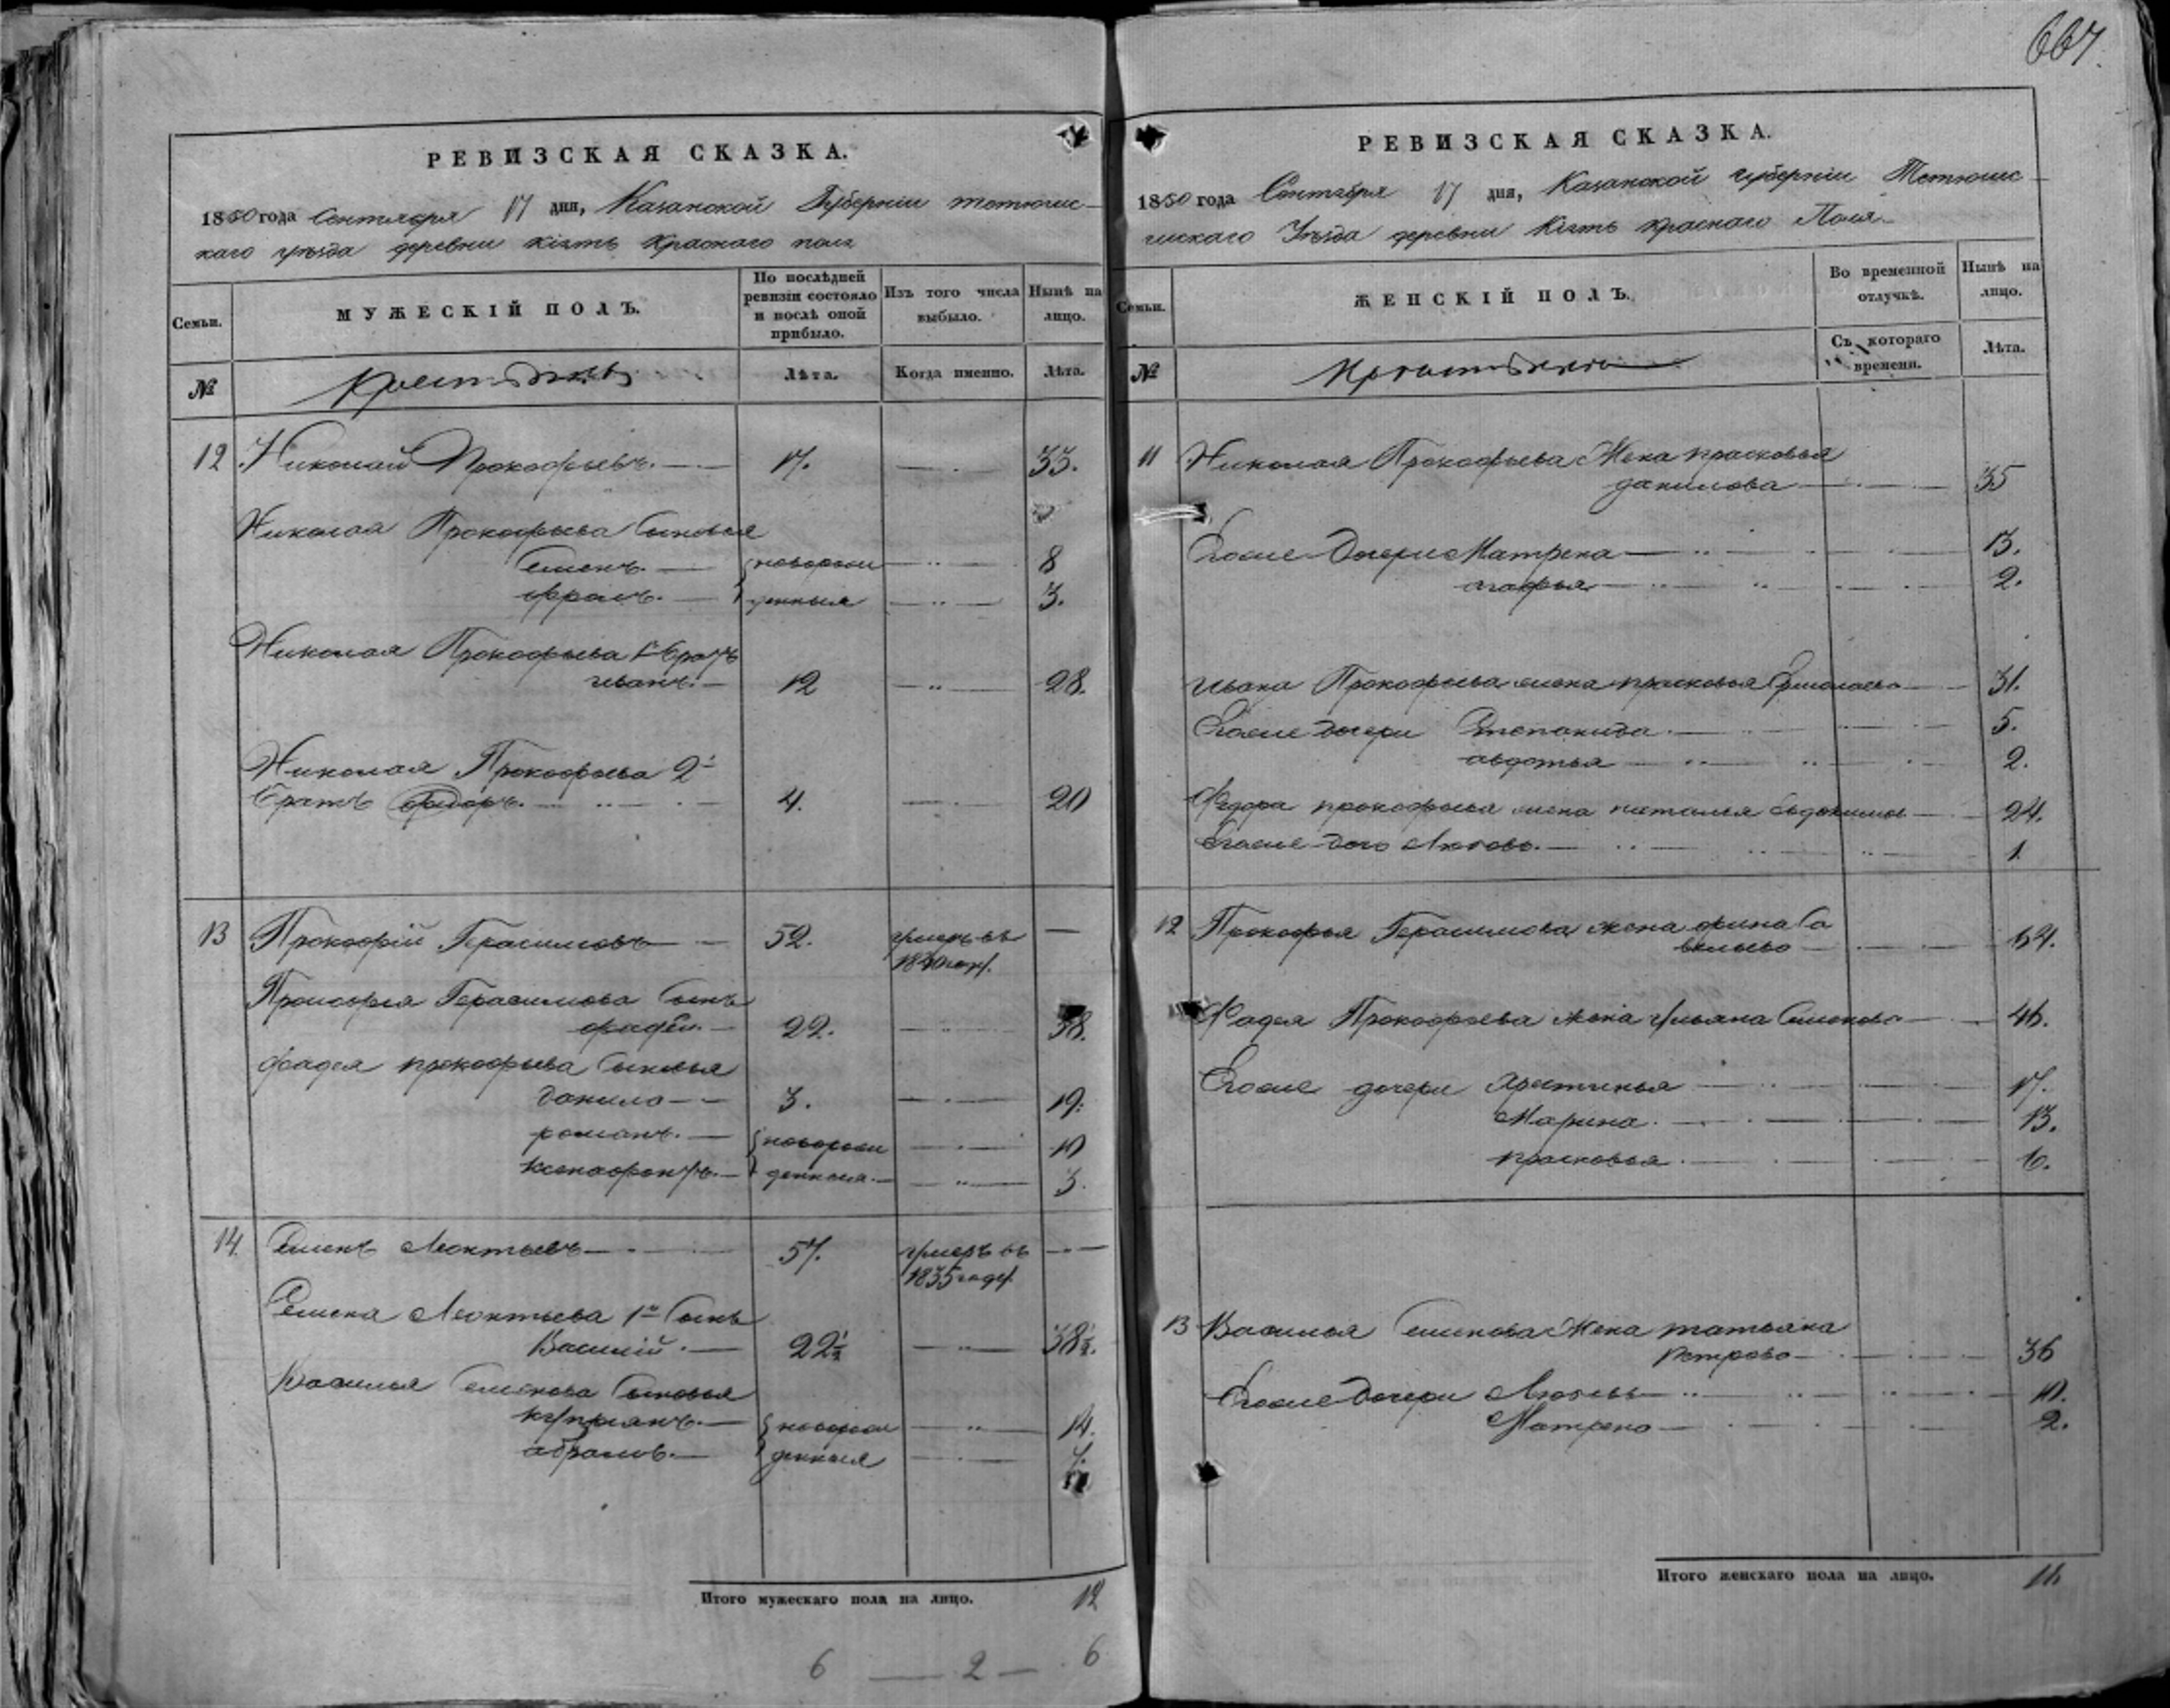 667.
РЕВИЗСКАЯ СКАЗКА.
1850 года Сентября 17 дня, Казанской Губернии тетюшс-
каго уѣзда деревни Кіять Краснаго поля
Семьи.
МУЖЕСКІЙ ПОЛЪ.
По послѣдней ревизіи состояло и послѣ оной прибыло.
Изъ того числа выбыло.
Нынѣ на лицо.
№
Лѣта.
Когда именно.
Лѣта.
12 Николай Прокофьевъ. 17. 33.
Николая Прокофьева Сыновья
Семенъ. новорож 8
фролъ. денныя 3.
Николая Прокофьева 1й братъ
иванъ. 12 28.
Николая Прокофьева 2й
братъ федоръ. 4. 20
13 Прокофій Герасимовъ 52. умеръ въ —
1840 году.
Прокофья Герасимова Сынъ
фадей. 22. 38.
фадея прокофьева Сыновья
данило 3. 19.
романъ. новорож 10
ксенофонтъ. денныя 3.
14. Семенъ Леонтьевъ 57. умеръ въ —
1835 году.
Семена Леонтьева 1й Сынъ
Василій. 22½ 38½.
Василья Семенова Сыновья
купріянъ. новорож 14.
абрамъ. денныя 7.
Итого мужескаго пола на лицо. 12
6 — 2 — 6
РЕВИЗСКАЯ СКАЗКА.
1850 года Сентября 17 дня, Казанской губерніи Тетюшс-
каго Уѣзда деревни Кіять Краснаго Поля
Семьи.
ЖЕНСКІЙ ПОЛЪ.
Во временной отлучкѣ.
Нынѣ на лицо.
№
Съ котораго времени.
Лѣта.
11 Николая Прокофьева Жена прасковья
данилова 35
Егоже дочери Матрена 13.
агафья 2.
ивана Прокофьева жена прасковья Ермолаева 31.
Егоже дочери Степанида 5.
авдотья 2.
Федора прокофьева жена наталья Евдокимова 24.
Егоже дочь Любовь. 1.
12 Прокофья Герасимова жена фрина Са
вельева 64.
Фадея Прокофьева жена ульяна Семенова 46.
Егоже дочери Христинья 17.
Марина. 13.
прасковья. 6.
13 Василья Семенова Жена татьяна
Петрова 36
Егоже дочери Любовь 10.
Матрена 2.
Итого женскаго пола на лицо. 16